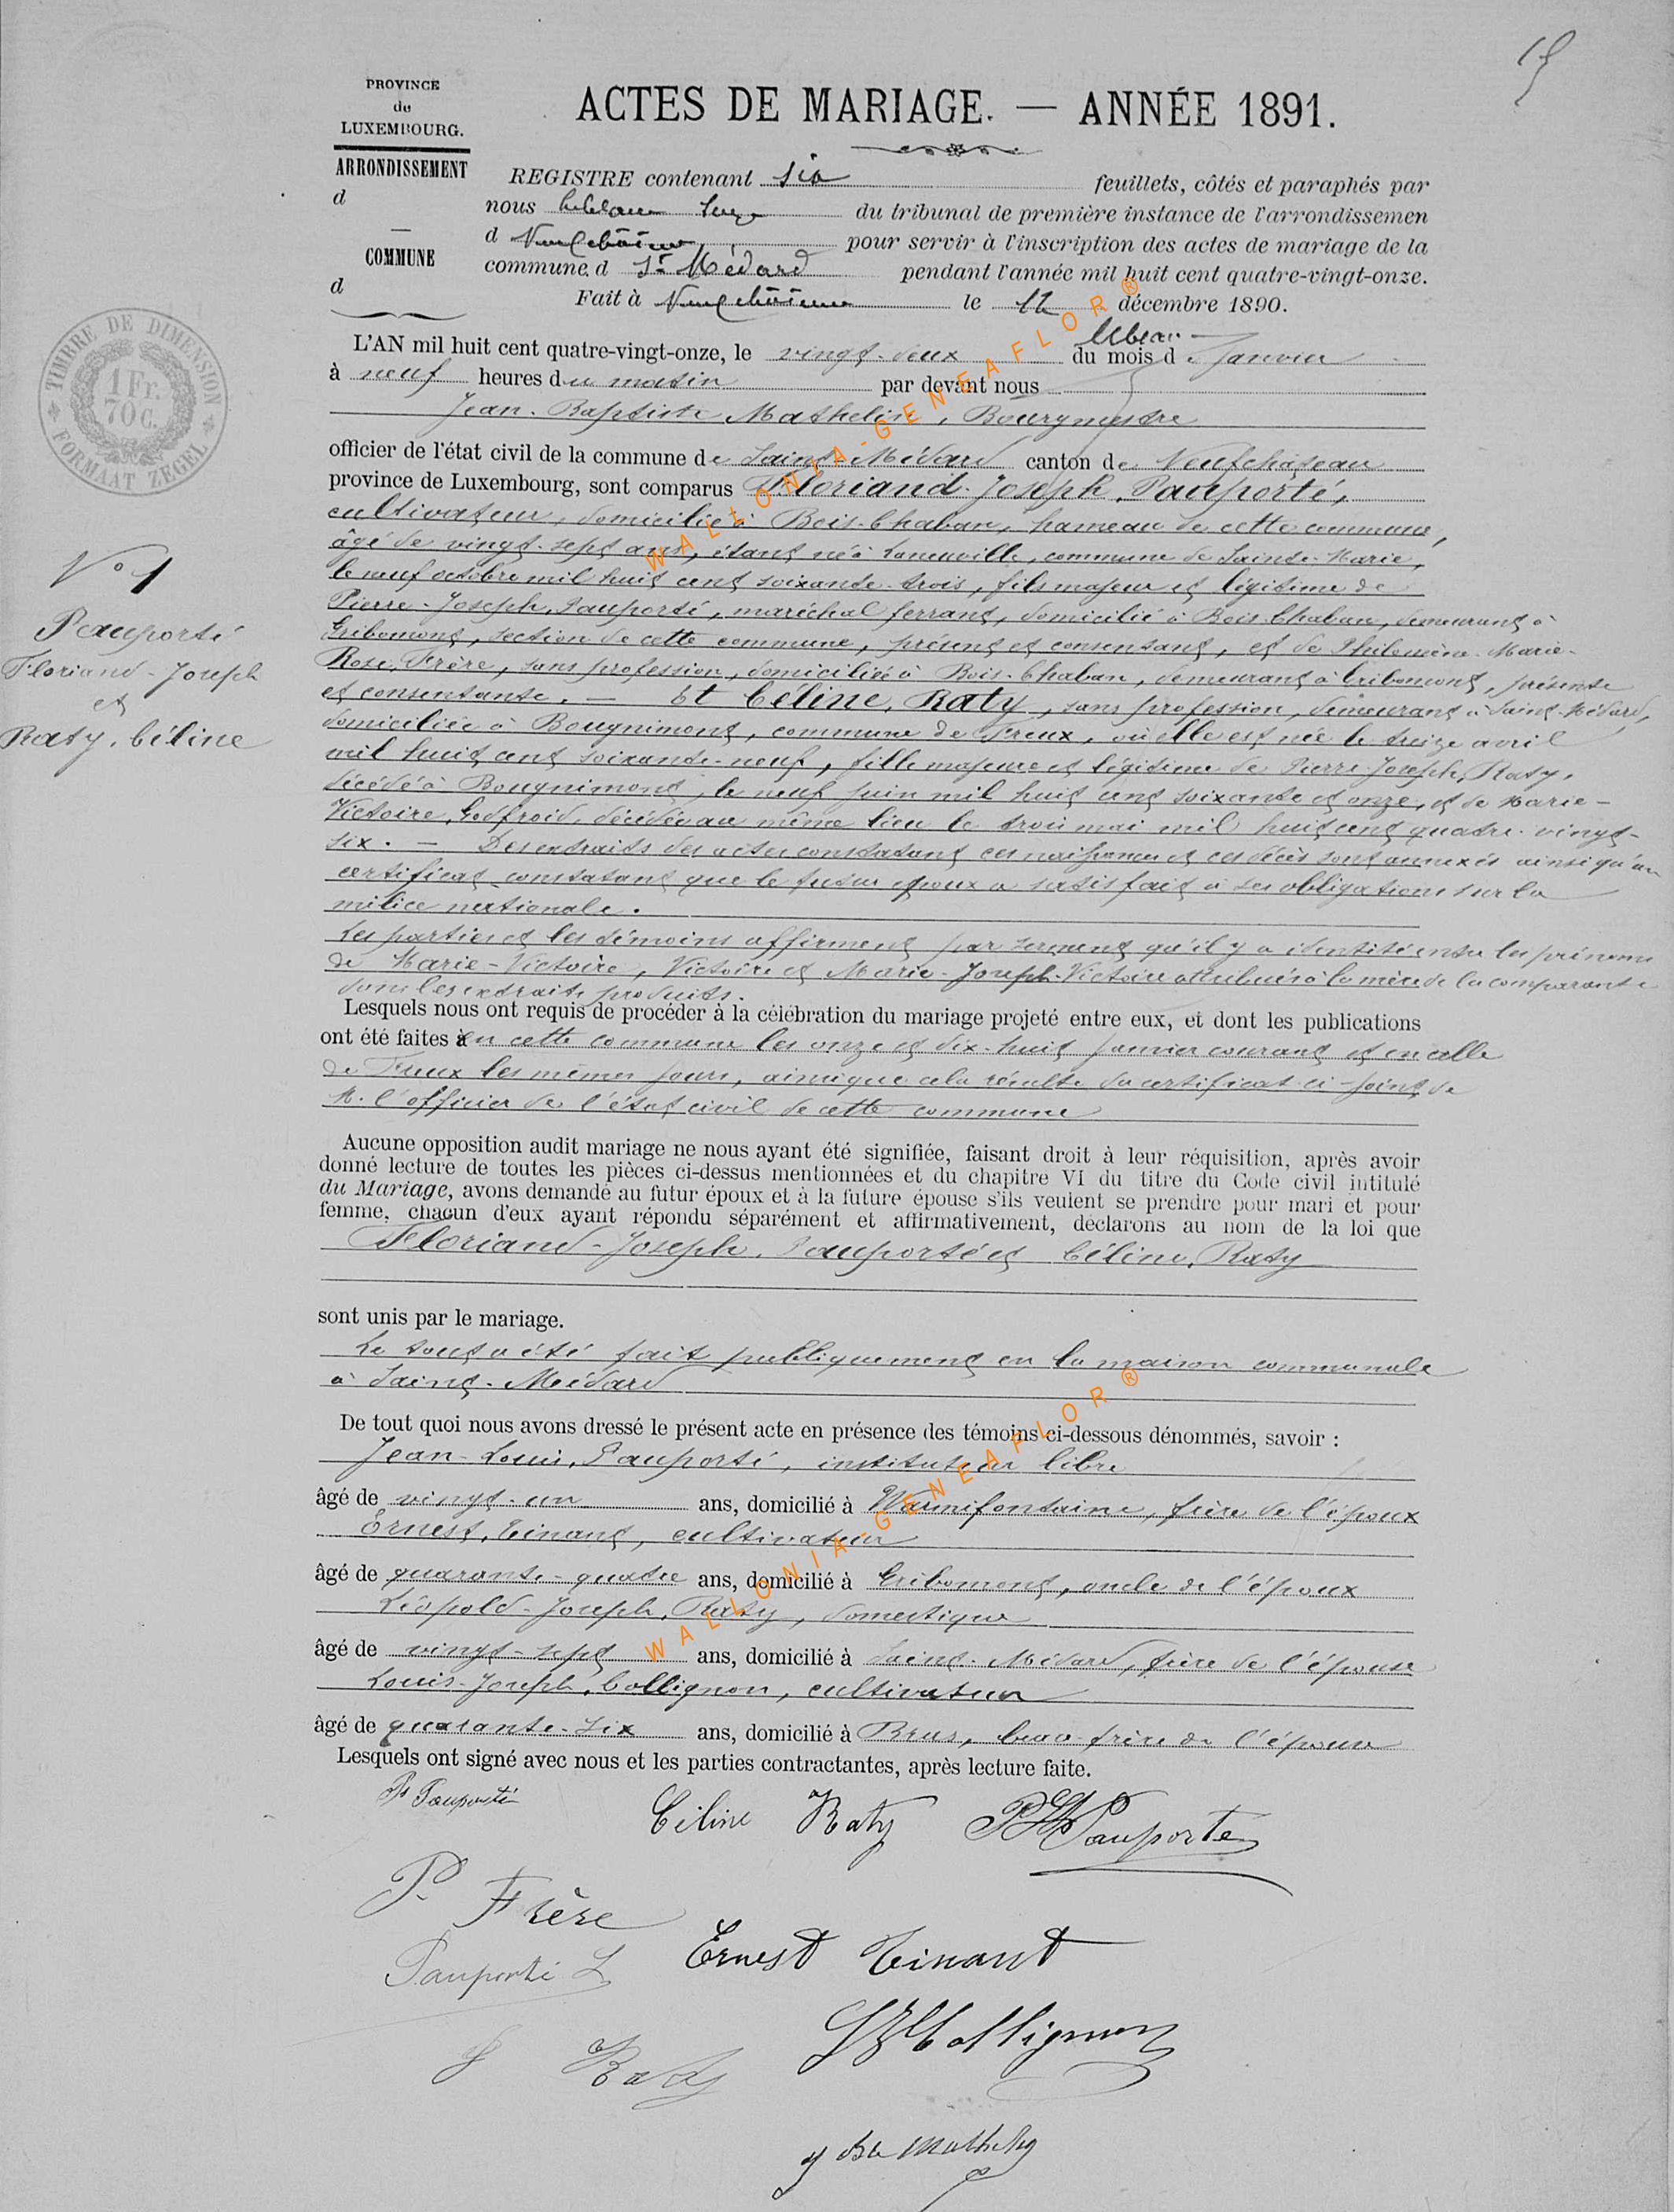 15
PROVINCE
du
LUXEMBOURG.
ARRONDISSEMENT
d
COMMUNE
d
ACTES DE MARIAGE. — ANNÉE 1891.
REGISTRE contenant six feuillets, côtés et paraphés par
nous du tribunal de première instance de l'arrondissemen
d Neufchâteau pour servir à l'inscription des actes de mariage de la
commune d St Médard pendant l'année mil huit cent quatre-vingt-onze.
Fait à Neufchâteau le 12 décembre 1890.
TIMBRE DE DIMENSION
1 Fr.
70 C.
FORMAAT ZEGEL
L'AN mil huit cent quatre-vingt-onze, le vingt-deux du mois de Janvier
à neuf heures du matin par devant nous
Jean-Baptiste Mathelin, Bourgmestre
officier de l'état civil de la commune de Saint-Médard canton de Neufchâteau
province de Luxembourg, sont comparus Floriand-Joseph, Pauporté,
cultivateur, domicilié à Bois-Chaban, hameau de cette commune,
âgé de vingt-sept ans, étant né à Laneuville, commune de Sainte-Marie,
le neuf octobre mil huit cent soixante-trois, fils majeur et légitime de
Pierre-Joseph, Pauporté, maréchal ferrant, domicilié à Bois-Chaban, demeurant à
Gribomont, section de cette commune, présent et consentant, et de Philomène-Marie-
Rose, Frère, sans profession, domiciliée à Bois-Chaban, demeurant à Gribomont, présente
et consentante. — Et Céline, Raty, sans profession, demeurant à Saint-Médard,
domiciliée à Bougnimont, commune de Freux, où elle est née le treize avril
mil huit cent soixante-neuf, fille majeure et légitime de Pierre-Joseph, Raty,
décédé à Bougnimont, le neuf juin mil huit cent soixante et onze, et de Marie-
Victoire, Godfroid, décédée au même lieu le trois mai mil huit cent quatre-vingt-
six. — Des extraits des actes constatant ces naissances et ces décès sont annexés ainsi qu'un
certificat constatant que le futur époux a satisfait à ses obligations sur la
milice nationale.
Les parties et les témoins affirment par serment qu'il y a identité entre les prénoms
de Marie-Victoire, Victoire et Marie-Joseph-Victoire attribués à la mère de la comparante
dans les extraits produits.
Lesquels nous ont requis de procéder à la célébration du mariage projeté entre eux, et dont les publications
ont été faites en cette commune les onze et dix-huit janvier courant et en celle
de Freux les mêmes jours, ainsi que cela résulte du certificat ci-joint de
M. l'officier de l'état civil de cette commune
Aucune opposition audit mariage ne nous ayant été signifiée, faisant droit à leur réquisition, après avoir
donné lecture de toutes les pièces ci-dessus mentionnées et du chapitre VI du titre du Code civil intitulé
du Mariage, avons demandé au futur époux et à la future épouse s'ils veulent se prendre pour mari et pour
femme, chacun d'eux ayant répondu séparément et affirmativement, déclarons au nom de la loi que
Floriand-Joseph, Pauporté et Céline, Raty
sont unis par le mariage.
Le tout a été fait publiquement en la maison communale
à Saint-Médard
De tout quoi nous avons dressé le présent acte en présence des témoins ci-dessous dénommés, savoir :
Jean-Louis, Pauporté, instituteur libre
âgé de vingt-un ans, domicilié à Warmifontaine, frère de l'époux
Ernest, Tinant, cultivateur
âgé de quarante-quatre ans, domicilié à Gribomont, oncle de l'époux
Léopold-Joseph, Raty, domestique
âgé de vingt-sept ans, domicilié à Saint-Médard, frère de l'épouse
Louis-Joseph, Collignon, cultivateur
âgé de quarante-six ans, domicilié à Bras, beau-frère de l'épouse
Lesquels ont signé avec nous et les parties contractantes, après lecture faite.
No 1
Pauporté
Floriand-Joseph
et
Raty, Céline
Pauporté
Céline Raty
Pauporté
P. Frère
Pauporté L
Ernest Tinant
Collignon
Raty
J Bte Mathelin
WALLONIA-GENEAFLOR®
WALLONIA-GENEAFLOR®